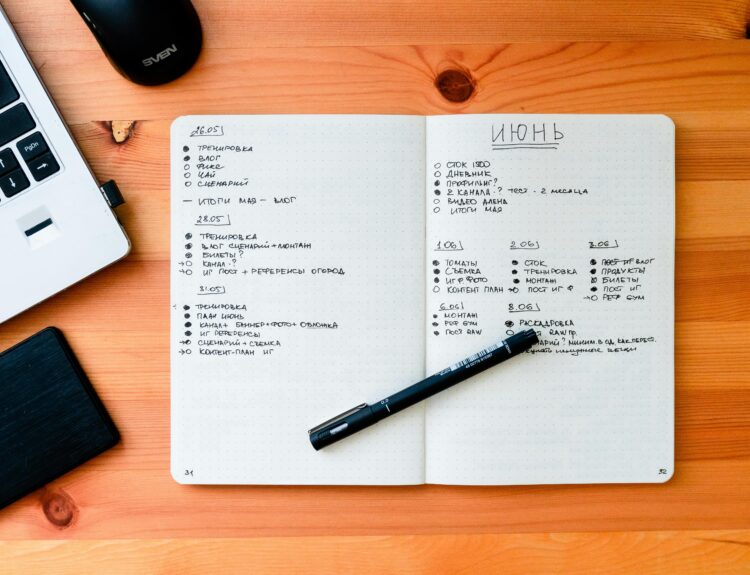 SVEN
PgDn
26.05
ТРЕНИРОВКА
ВЛОГ
ФИКС
ЧАЙ
СЦЕНАРИЙ
— ИТОГИ МАЯ – ВЛОГ
28.05
ТРЕНИРОВКА
ВЛОГ СЦЕНАРИЙ + МОНТАЖ
БИЛЕТЫ?
КАНАЛ - ?
ИГ ПОСТ + РЕФЕРЕНСЫ ОГОРОД
31.05
ТРЕНИРОВКА
ПЛАН ИЮНЬ
КАНАЛ + БАННЕР + ФОТО + ОБЛОЖКА
ИГ РЕФЕРЕНСЫ
СЦЕНАРИЙ + СЪЕМКА
КОНТЕНТ-ПЛАН ИГ
31
ИЮНЬ
СТОК 1500
ДНЕВНИК
ПРОФИЛЬ ИГ?
2 КАНАЛА - ? ТЕСТ - 2 МЕСЯЦА
ВИДЕО АЛЕНА
ИТОГИ МАЯ
1.06
ТОМАТЫ
СЪЕМКА
ИГ Ф ФОТО
КОНТЕНТ ПЛАН
2.06
СТОК
ТРЕНИРОВКА
МОНТАЖ
ПОСТ ИГ Ф
3.06
ПОСТ ИГ ВЛОГ
ПРОДУКТЫ
БИЛЕТЫ
ПОСТ ИГ
РЕФ GYM
6.06
МОНТАЖ
РЕФ GYM
ПОСТ RAW
8.06
РАСКАДРОВКА
RAW ПР.
? МИНИМ. В ОД. КАК
32
0.2